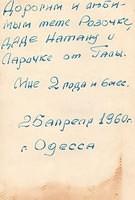 Дорогим и люби-
мым тете Розочке,
дяде Натану и
Ларочке от Галы.
Мне 2 года и 6 мес.
26 апреля 1960г.
г. Одесса